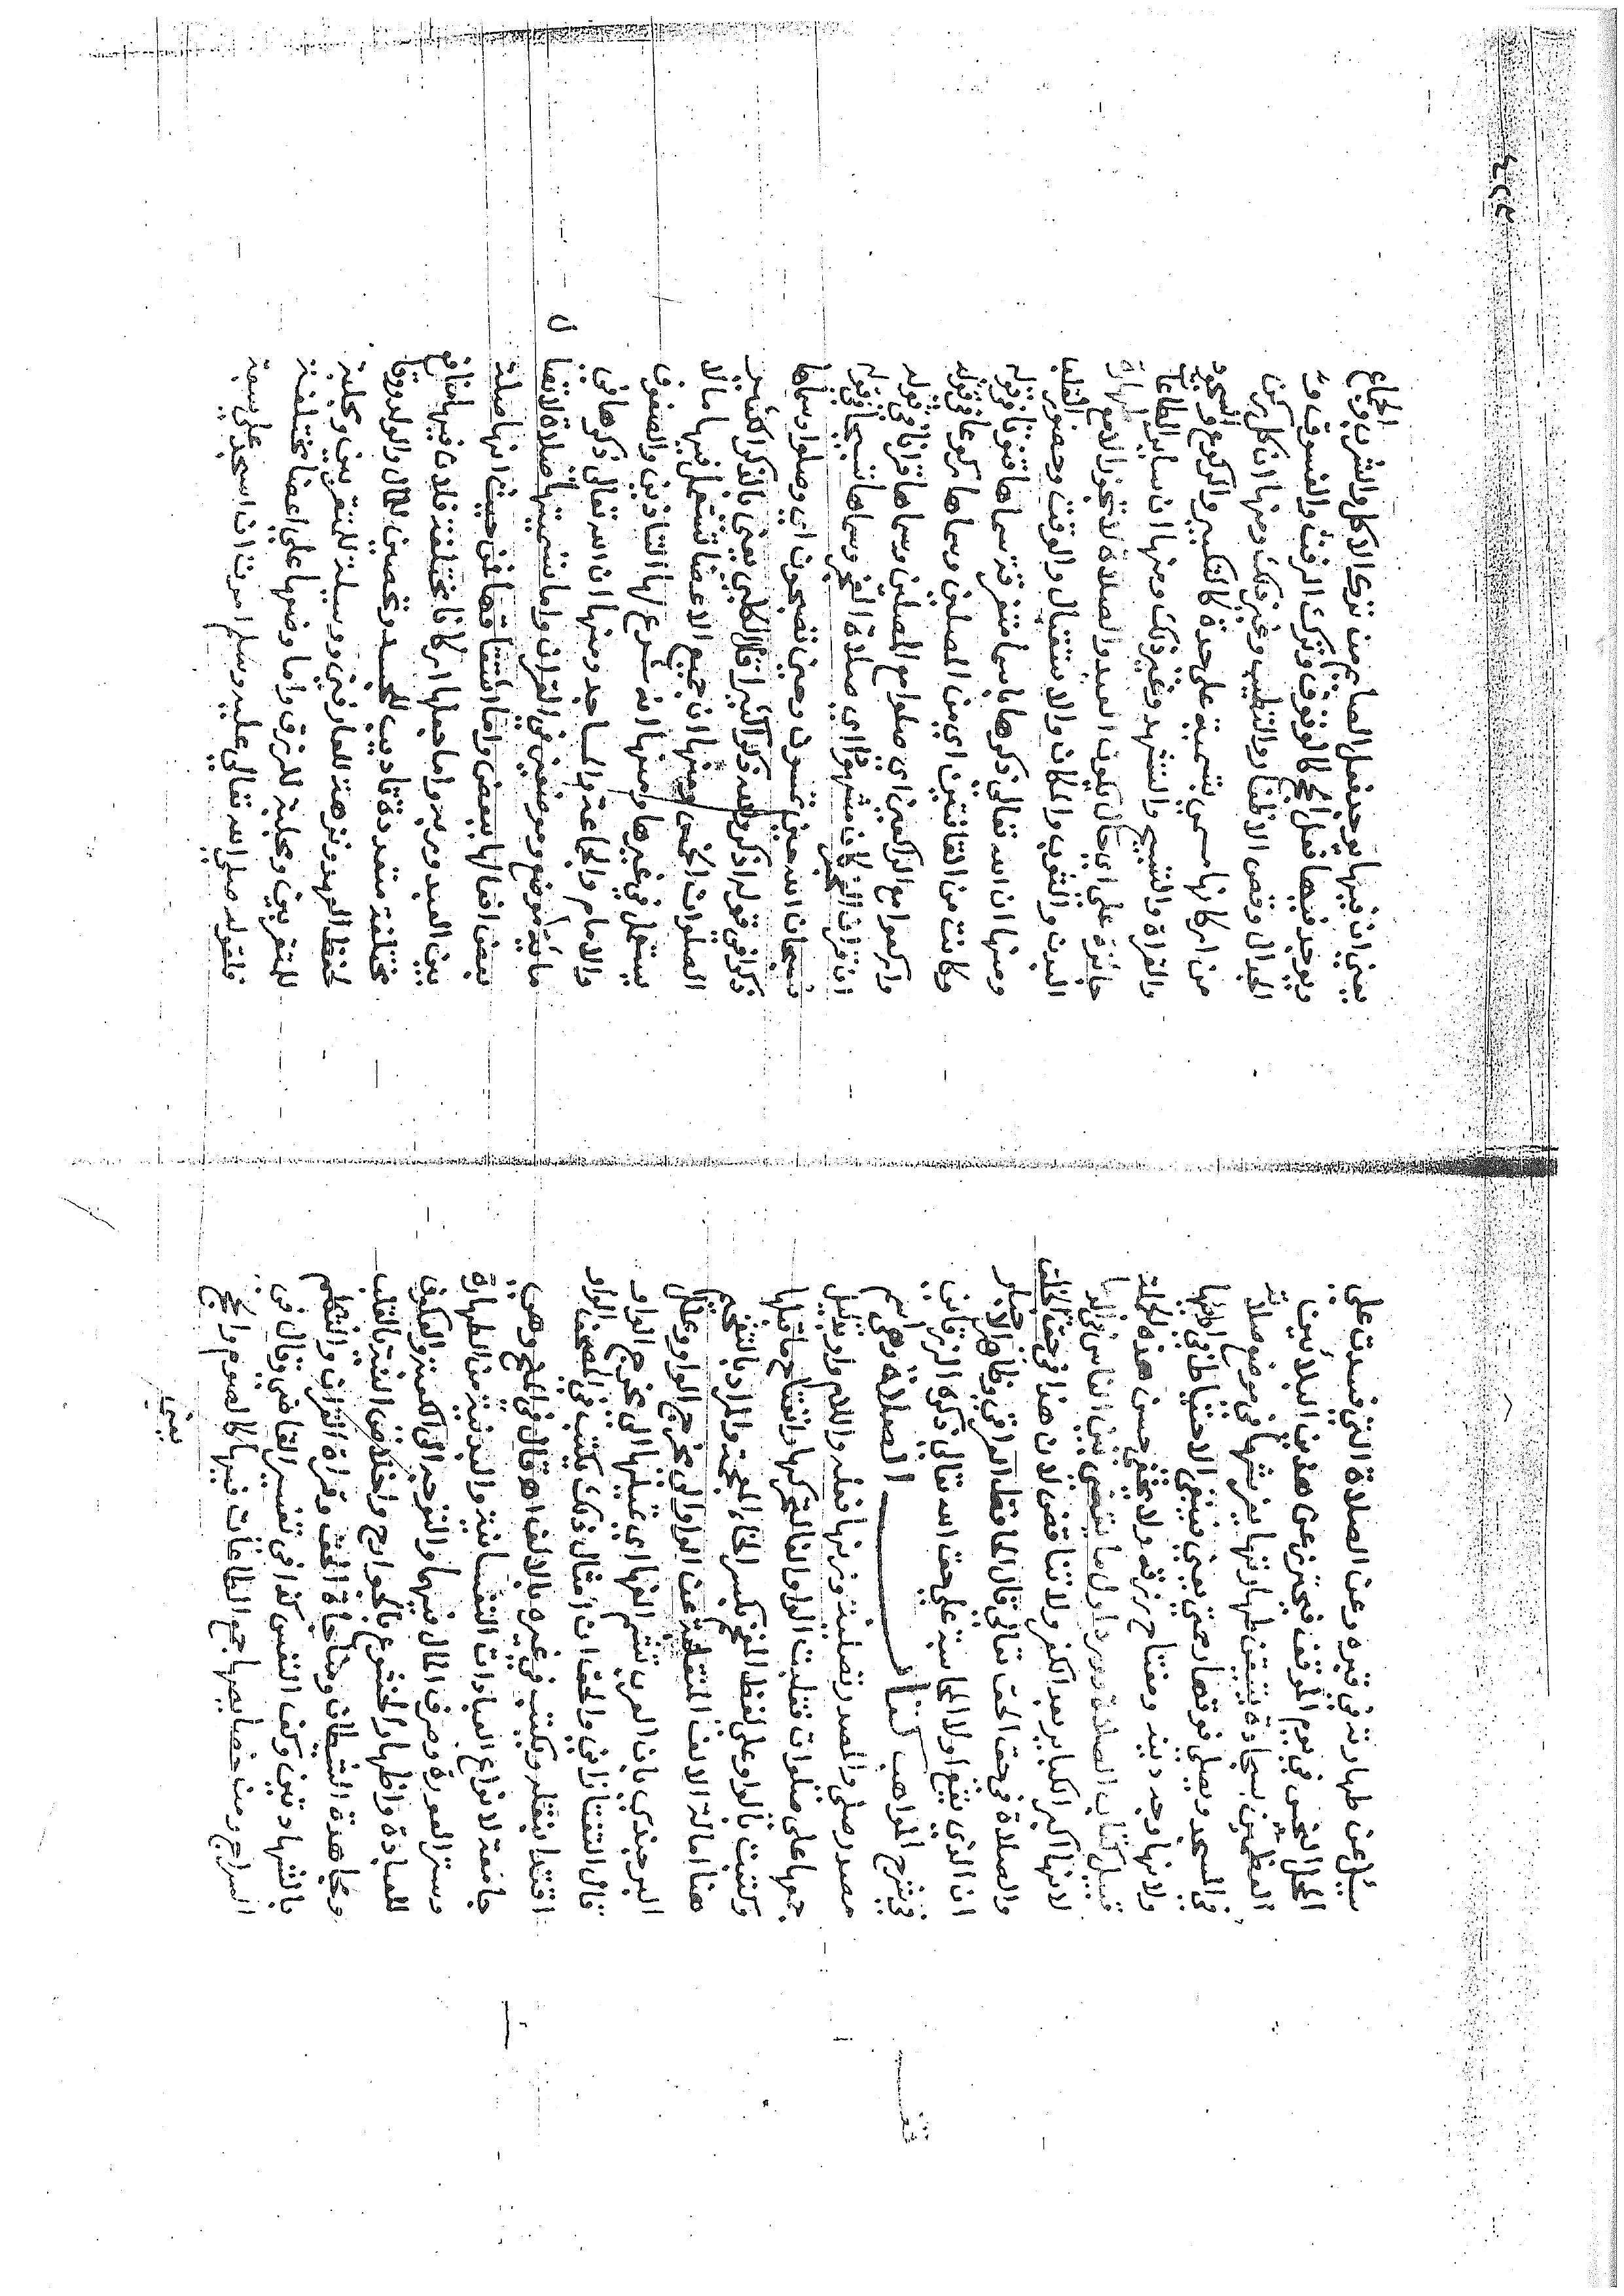 سئل عن طهارته في قبره وعن الصلاة التي فسدت على
المحل النجس في يوم الموقف فيحترز عن هذين البلائين
العظيمين بسجادة يتيقن طهارتها يفرشها في موضع صلاته
في المسجد ويصلي فوقها حتى يعني فينتفي الاحتياط في
ولانها وجه دينه ومفتاح رزقه ولا يخفى حسن هذه
قبيل كتاب الصلاة اول ما يقضى بين الناس في الدما
لانها اكبر الكبائر بعد الكفر ولا تناقض لان هذا في حق الخلق
والصلاة في حق الحق تعالى قال الحافظ العراقي وظاهر الاخبار
ان الذي يقع اولا المحاسبة على حق الله تعالى ذكره الزرقاني
في شرح المواهب كتاب الصلاة وهي اسم
مصدر صلى والمصدر تصلية وزنها فعلة واللام واو بدليل
جمعها على صلوات فقلبت الواو الفا لتحركها وانفتاح ما قبلها
وكتبت بالواو على لفظ المفخم بكسر الخاء المعجمة والمراد بالتفخيم
هنا امالة الالف المنقلبة عن الواو الى مخرج الواو وعلل
البرجندي بان العرب تشم الفها اي تميلها الى مخرج الواو
قال التفتازاني والحق ان امثال ذلك يكتب في المصحف بالواو
اقتداء بنقله ويكتب في غيره بالالف اهـ قال في المنح وهي
جامعة لانواع العبادات النفسانية والبدنية من الطهارة
وستر العورة وصرف المال فيهما والتوجه الى الكعبة والعكوف
للعبادة واظهار الخشوع بالجوارح واخلاص النية بالقلب
ومجاهدة الشيطان ومناجاة الحق وقراة القران والتكلم
بالشهادتين وكف النفس كذا في تفسير القاضي وقال في
السراج ومن خصايصها جمع الطاعات فيها كالصوم والحج
يعني
يعني ان فيها يوجد فعل الصايم من ترك الاكل والشرب والجماع
ويوجد فيها فعل الحج كالوقوف وترك الرفث والفسوق
الجدال وقص الاظفار والتطيب وغير ذلك ومنها ان كل ركن
من اركانها سمي بتسمية على حدة كالتكبير والركوع والسجود
والقراة والتسبيح والتشهد وغير ذلك ومنها ان ساير الطاعات
جايزة على اي حال يكون العبد والصلاة لا تجوز الا مع طهارة
البدن والثوب والمكان والاستقبال والوقت وحضور القلب
ومنها ان الله تعالى ذكرها باسما متفرقة سماها قنوتا في قوله
وكانت من القانتين اي من المصلين وسماها ركوعا في قوله
واركعوا مع الراكعين اي صلوا مع المصلين وسماها قرانا في قوله
ان قران الفجر كان مشهودا اي صلاة الفجر وسماها تسبيحا في قوله
فسبحان الله حين تمسون وحين تصبحون اي وصلوا وسماها
ذكرا في قوله ولذكر الله اكبر قال الكلبي يعني بالذكر التكبير
الصلوات الخمس ومنها ان جميع الاعضا تشتغل فيها مالا
يشتغل في غيرها ومنها انه شرع لها التاذين والصفوف
والامام والجماعة والمساجد ومنها ان الله تعالى ذكرها في
ماية موضع وموضعين في القران واما تسميتها صلاة لانها
بعض افعالها ببعض واما اشتقاقها فمن حيث انها صلة
بين العبد وربه واما جعلها اركانا مختلفة فلان فيها منافع
مختلفة متعددة تاديب للجسد وتحصين للمال والولد ووقا
لحفظ العهد ونزهة للعارفين ووسيلة للمتقربين ومجلبة
للمتقربين ومجلبة للرزق واما وضعها على اعضا مختلفة
فلقوله صلى الله تعالى عليه وسلم امرت ان اسجد على سبعة